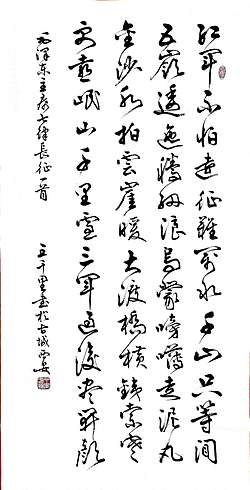 紅軍不怕遠征難萬水千山只等閒
五嶺逶迤騰細浪烏蒙磅礴走泥丸
金沙水拍雲崖暖大渡橋橫鐵索寒
更喜岷山千里雪三軍過後盡開顏
毛澤東主席七律長征一首 王千里書於古城西安